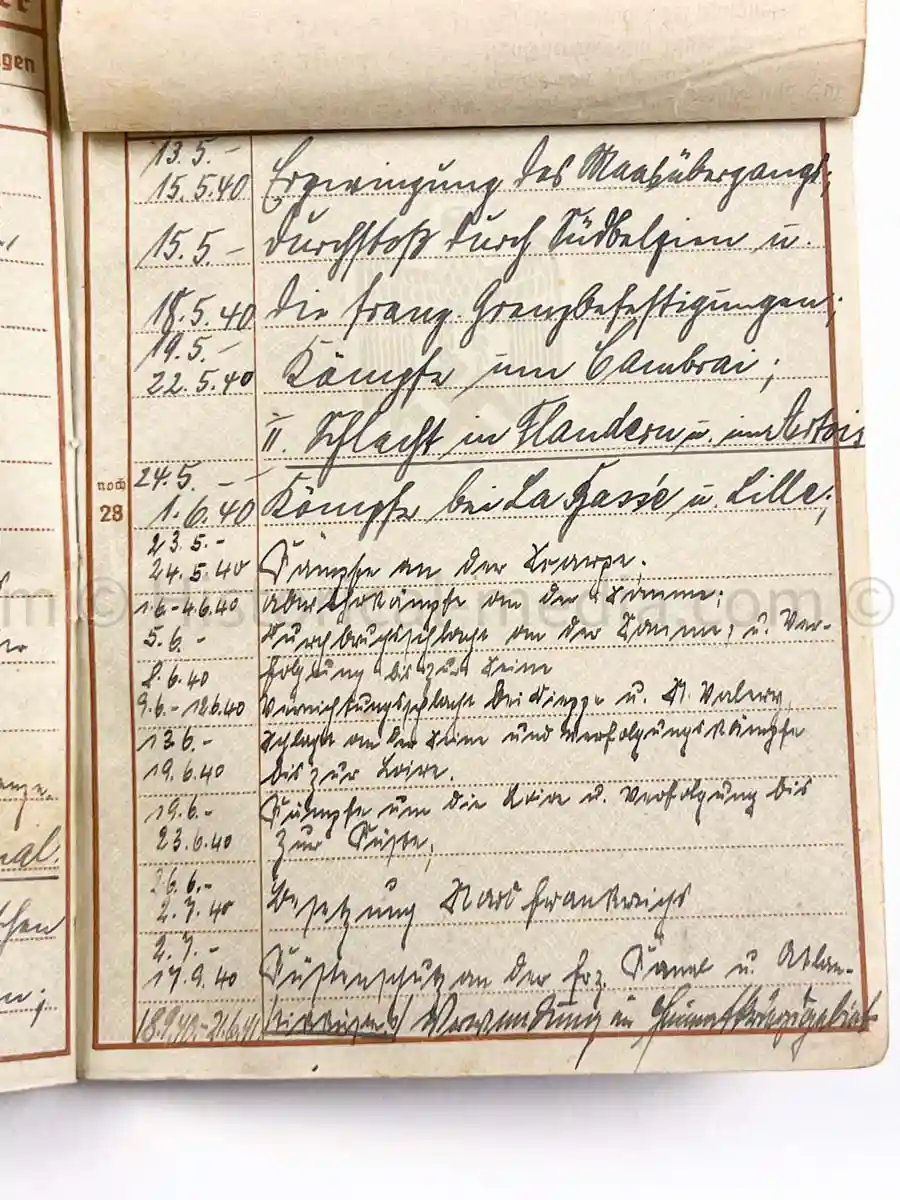 gen
13.5.-
15.5.40 Erzwingung des Maasübergangs;
15.5.- Durchstoß durch Südbelgien u.
18.5.40 die franz. Grenzbefestigungen;
19.5.-
22.5.40 Kämpfe um Cambrai;
II. Schlacht in Flandern u. im Artois
noch
28
24.5. -
1.6.40 Kämpfe bei La Bassée u. Lille;
23.5.-
24.5.40 Kämpfe an der Scarpe.
1.6.-4.6.40 Abwehrkämpfe an der Somme;
5.6.- Durchbruchsschlacht an der Somme, u. Ver-
8.6.40 folgung bis zur Seine
9.6.-12.6.40 Vernichtungsschlacht bei Dieppe u. St. Valery,
13.6.- Schlacht an der Seine und Verfolgungskämpfe
19.6.40 bis zur Loire.
19.6.- Kämpfe um die u. Verfolgung bis
23.6.40 zur
26.6.-
2.7.40 Besetzung Frankreichs
2.7.-
17.9.40 Küstenschutz an der frz. Kanal u. Atlan-
Verwendung im Heimatkriegsgebiet